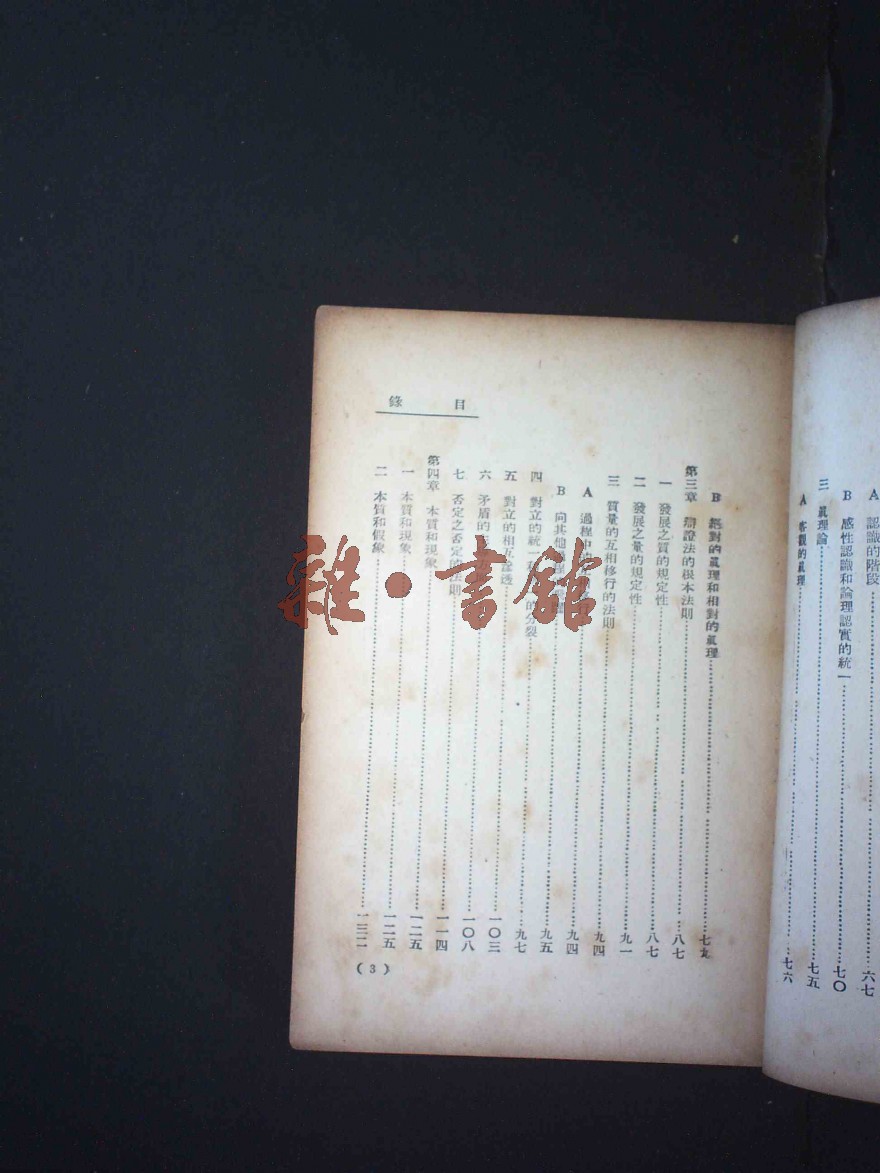 A 認識的階段……六七
B 感性認識和論理認實的統一……七〇
三 眞理論……七五
A 客觀的眞理……七六
目錄
B 絕對的眞理和相對的眞理……七九
第三章 辯證法的根本法則……八七
一 發展之質的規定性……八七
二 發展之量的規定性……九一
三 質量的互相移行的法則……九四
A 過程中……九四
B 向其他……九五
四 對立的統一和……的分裂……九七
五 對立的相互滲透……一〇三
六 矛盾的……一〇八
七 否定之否定的法則……一一四
第四章 本質和現象……一二五
一 本質和現象……一二五
二 本質和假象……一三二
(3)
雜·書館